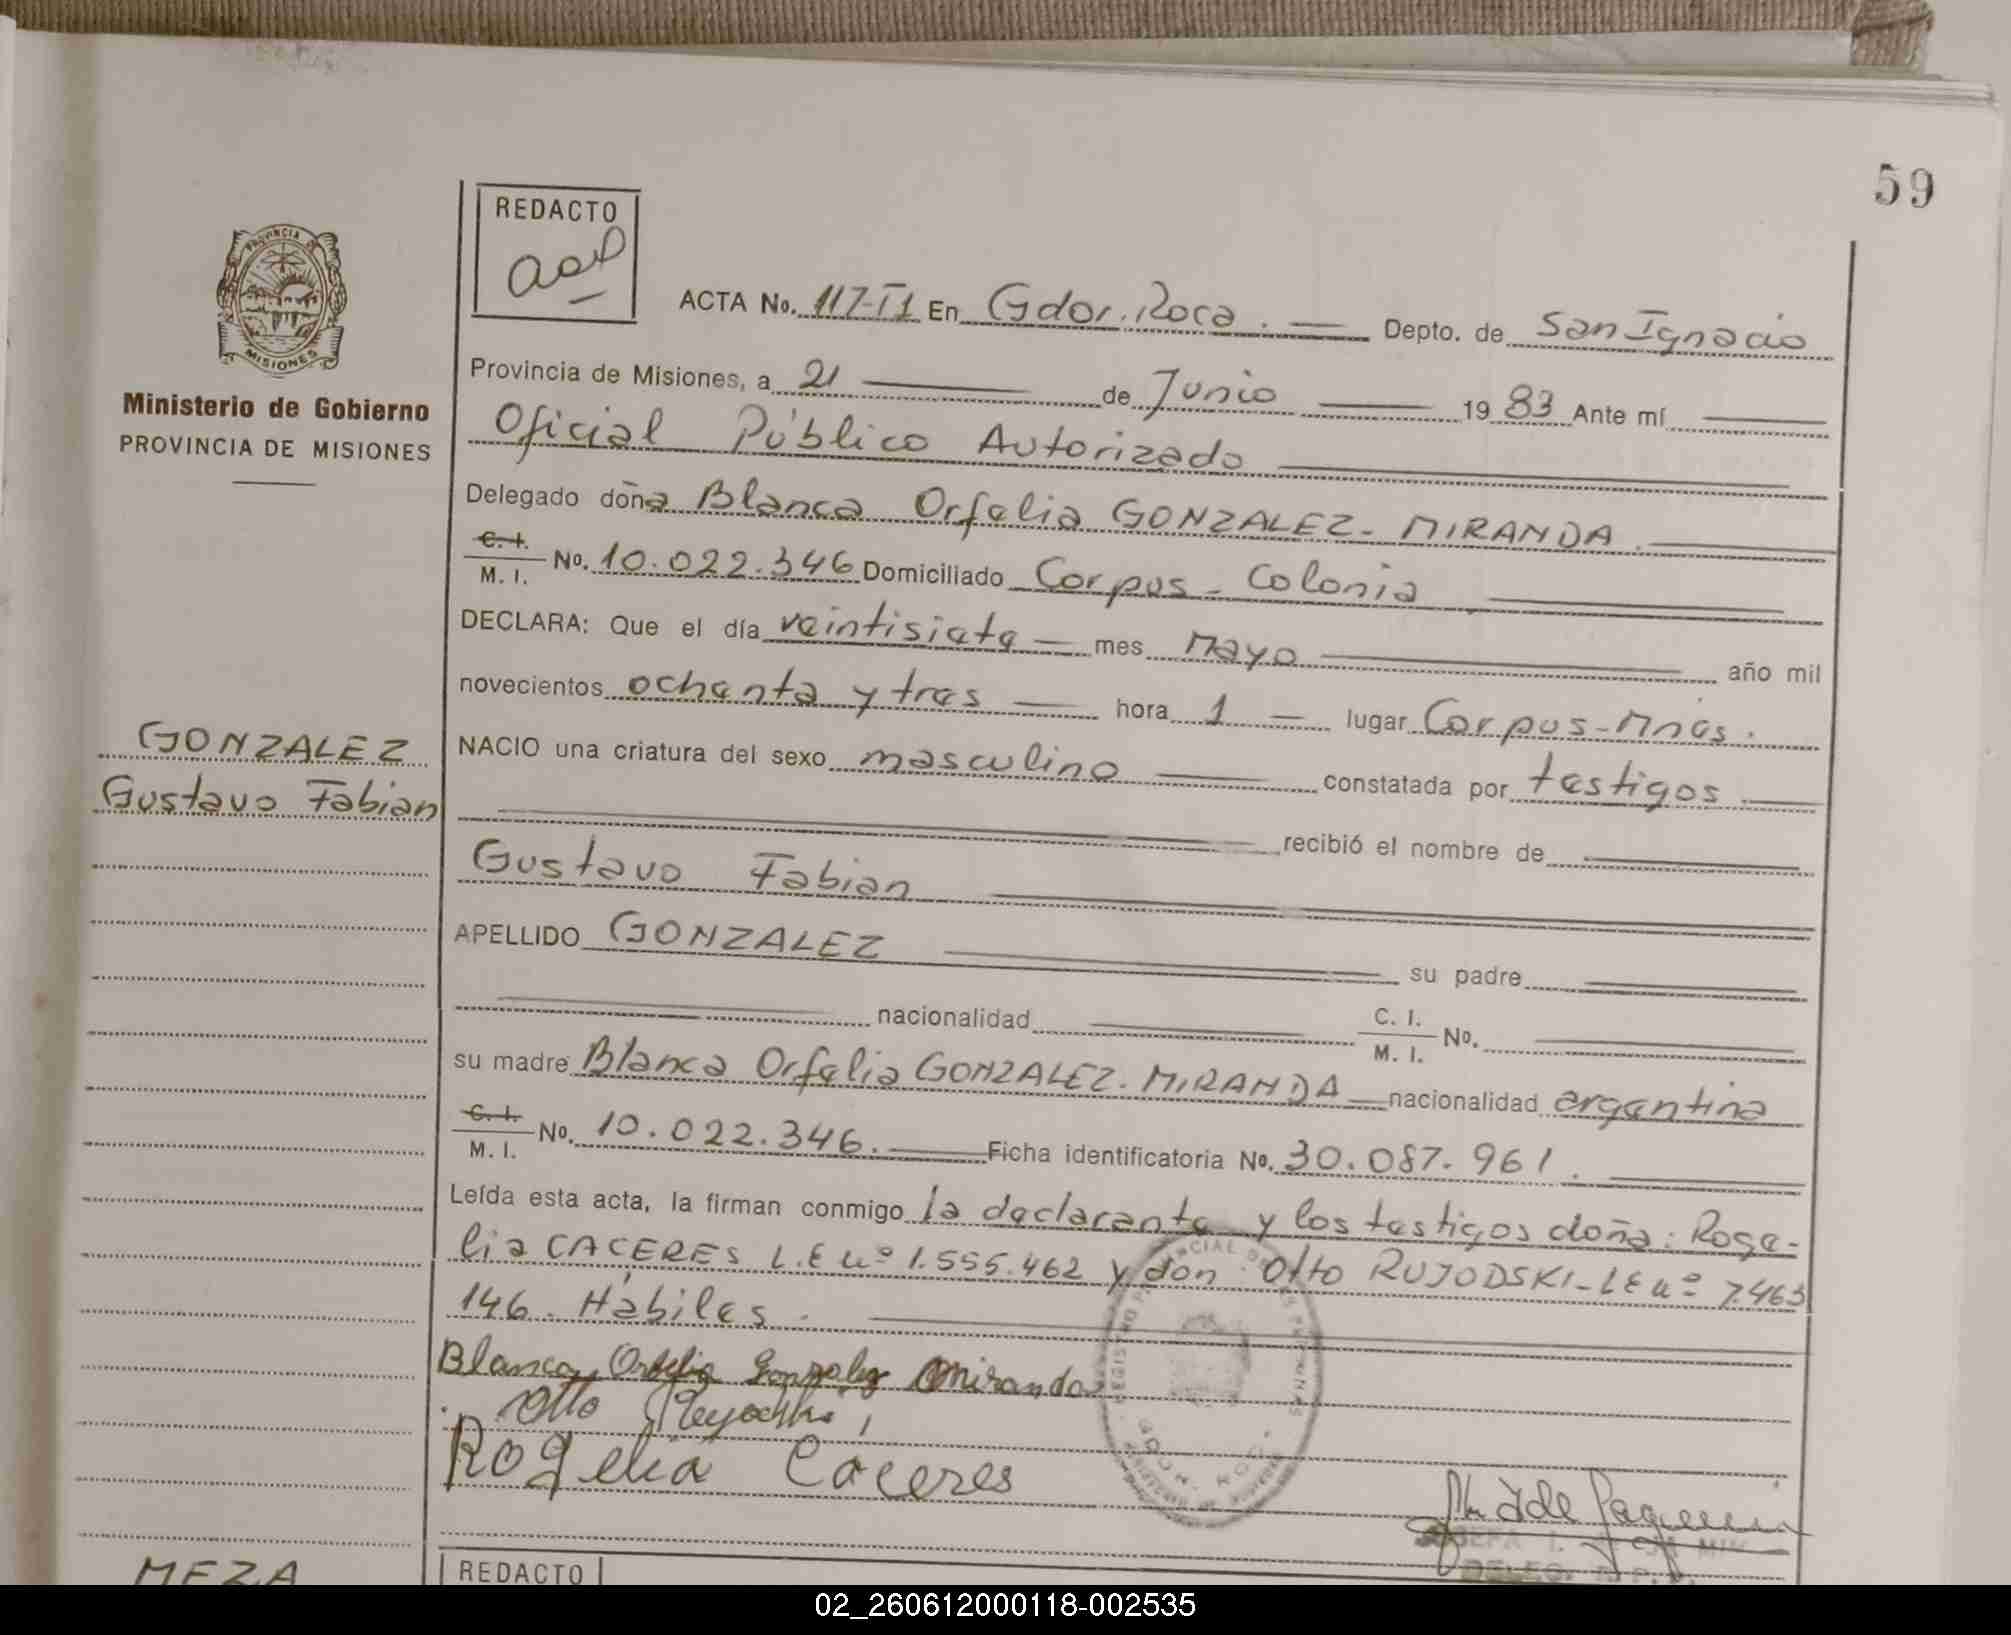 59
REDACTO
ACTA No. 117-T1 En Gdor. Roca. Depto. de San Ignacio
PROVINCIA DE
MISIONES
Ministerio de Gobierno
PROVINCIA DE MISIONES
Provincia de Misiones, a 21 de Junio 1983 Ante mí
Oficial Público Autorizado
Delegado doña Blanca Orfelia GONZALEZ-MIRANDA.
C. I. / M. I. No. 10.022.346 Domiciliado Corpus - Colonia
DECLARA: Que el día veintisiete mes Mayo año mil
novecientos ochenta y tres hora 1 lugar Corpus-Mnes.
GONZALEZ
Gustavo Fabian
NACIO una criatura del sexo masculino constatada por testigos
recibió el nombre de
Gustavo Fabian
APELLIDO GONZALEZ su padre
nacionalidad C. I. / M. I. No.
su madre Blanca Orfelia GONZALEZ-MIRANDA nacionalidad argentina
C. I. / M. I. No. 10.022.346. Ficha identificatoria No. 30.087.961.
Leída esta acta, la firman conmigo la declarante y los testigos doña: Roge-
lia CACERES L.E nº 1.555.462 y don Otto RUJODSKI-LE nº 7.463
146. Hábiles.
Blanca Orfelia Gonzalez Miranda
Otto
Rogelia Cáceres
MEZA
REDACTO
02_260612000118-002535